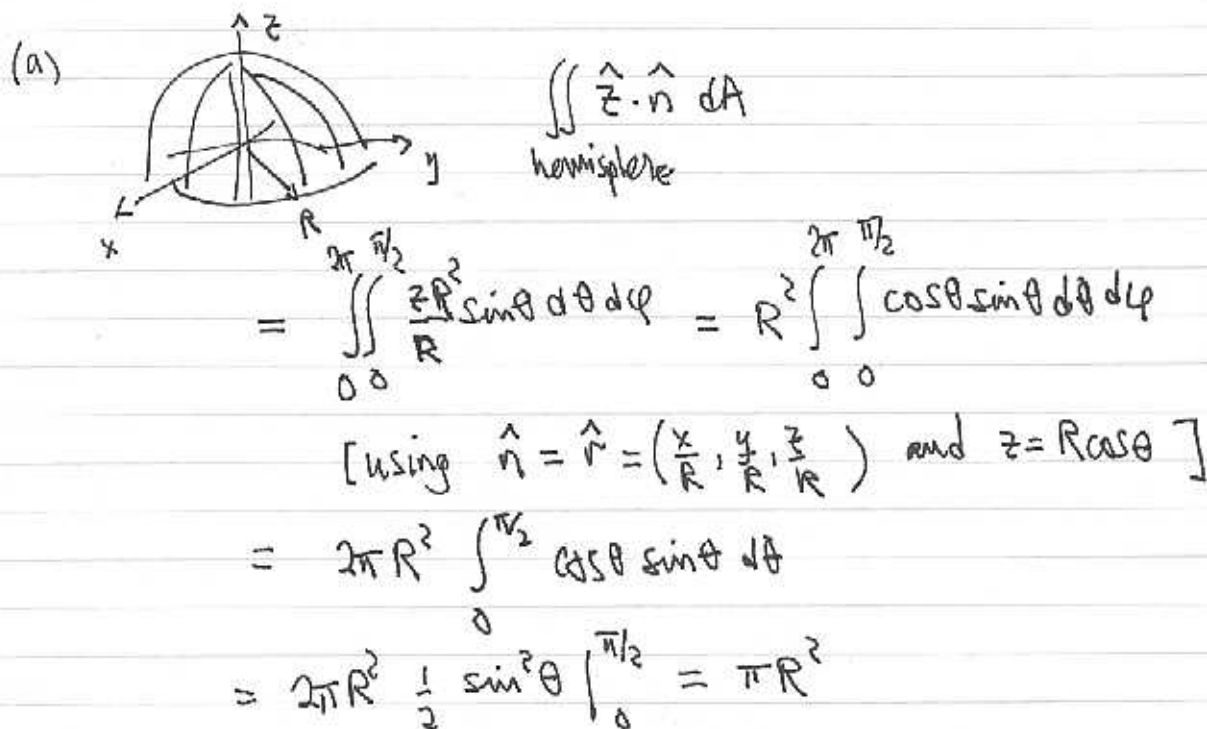 (a)
z
y
x
R
∬ ẑ·n̂ dA
hemisphere
= ∫₀^{2π}∫₀^{π/2} zR²/R sinθ dθ dφ = R² ∫₀^{2π} ∫₀^{π/2} cosθ sinθ dθ dφ
[using n̂ = r̂ = (x/R, y/R, z/R) and z = R cosθ]
= 2πR² ∫₀^{π/2} cosθ sinθ dθ
= 2πR² 1/2 sin²θ |₀^{π/2} = πR²